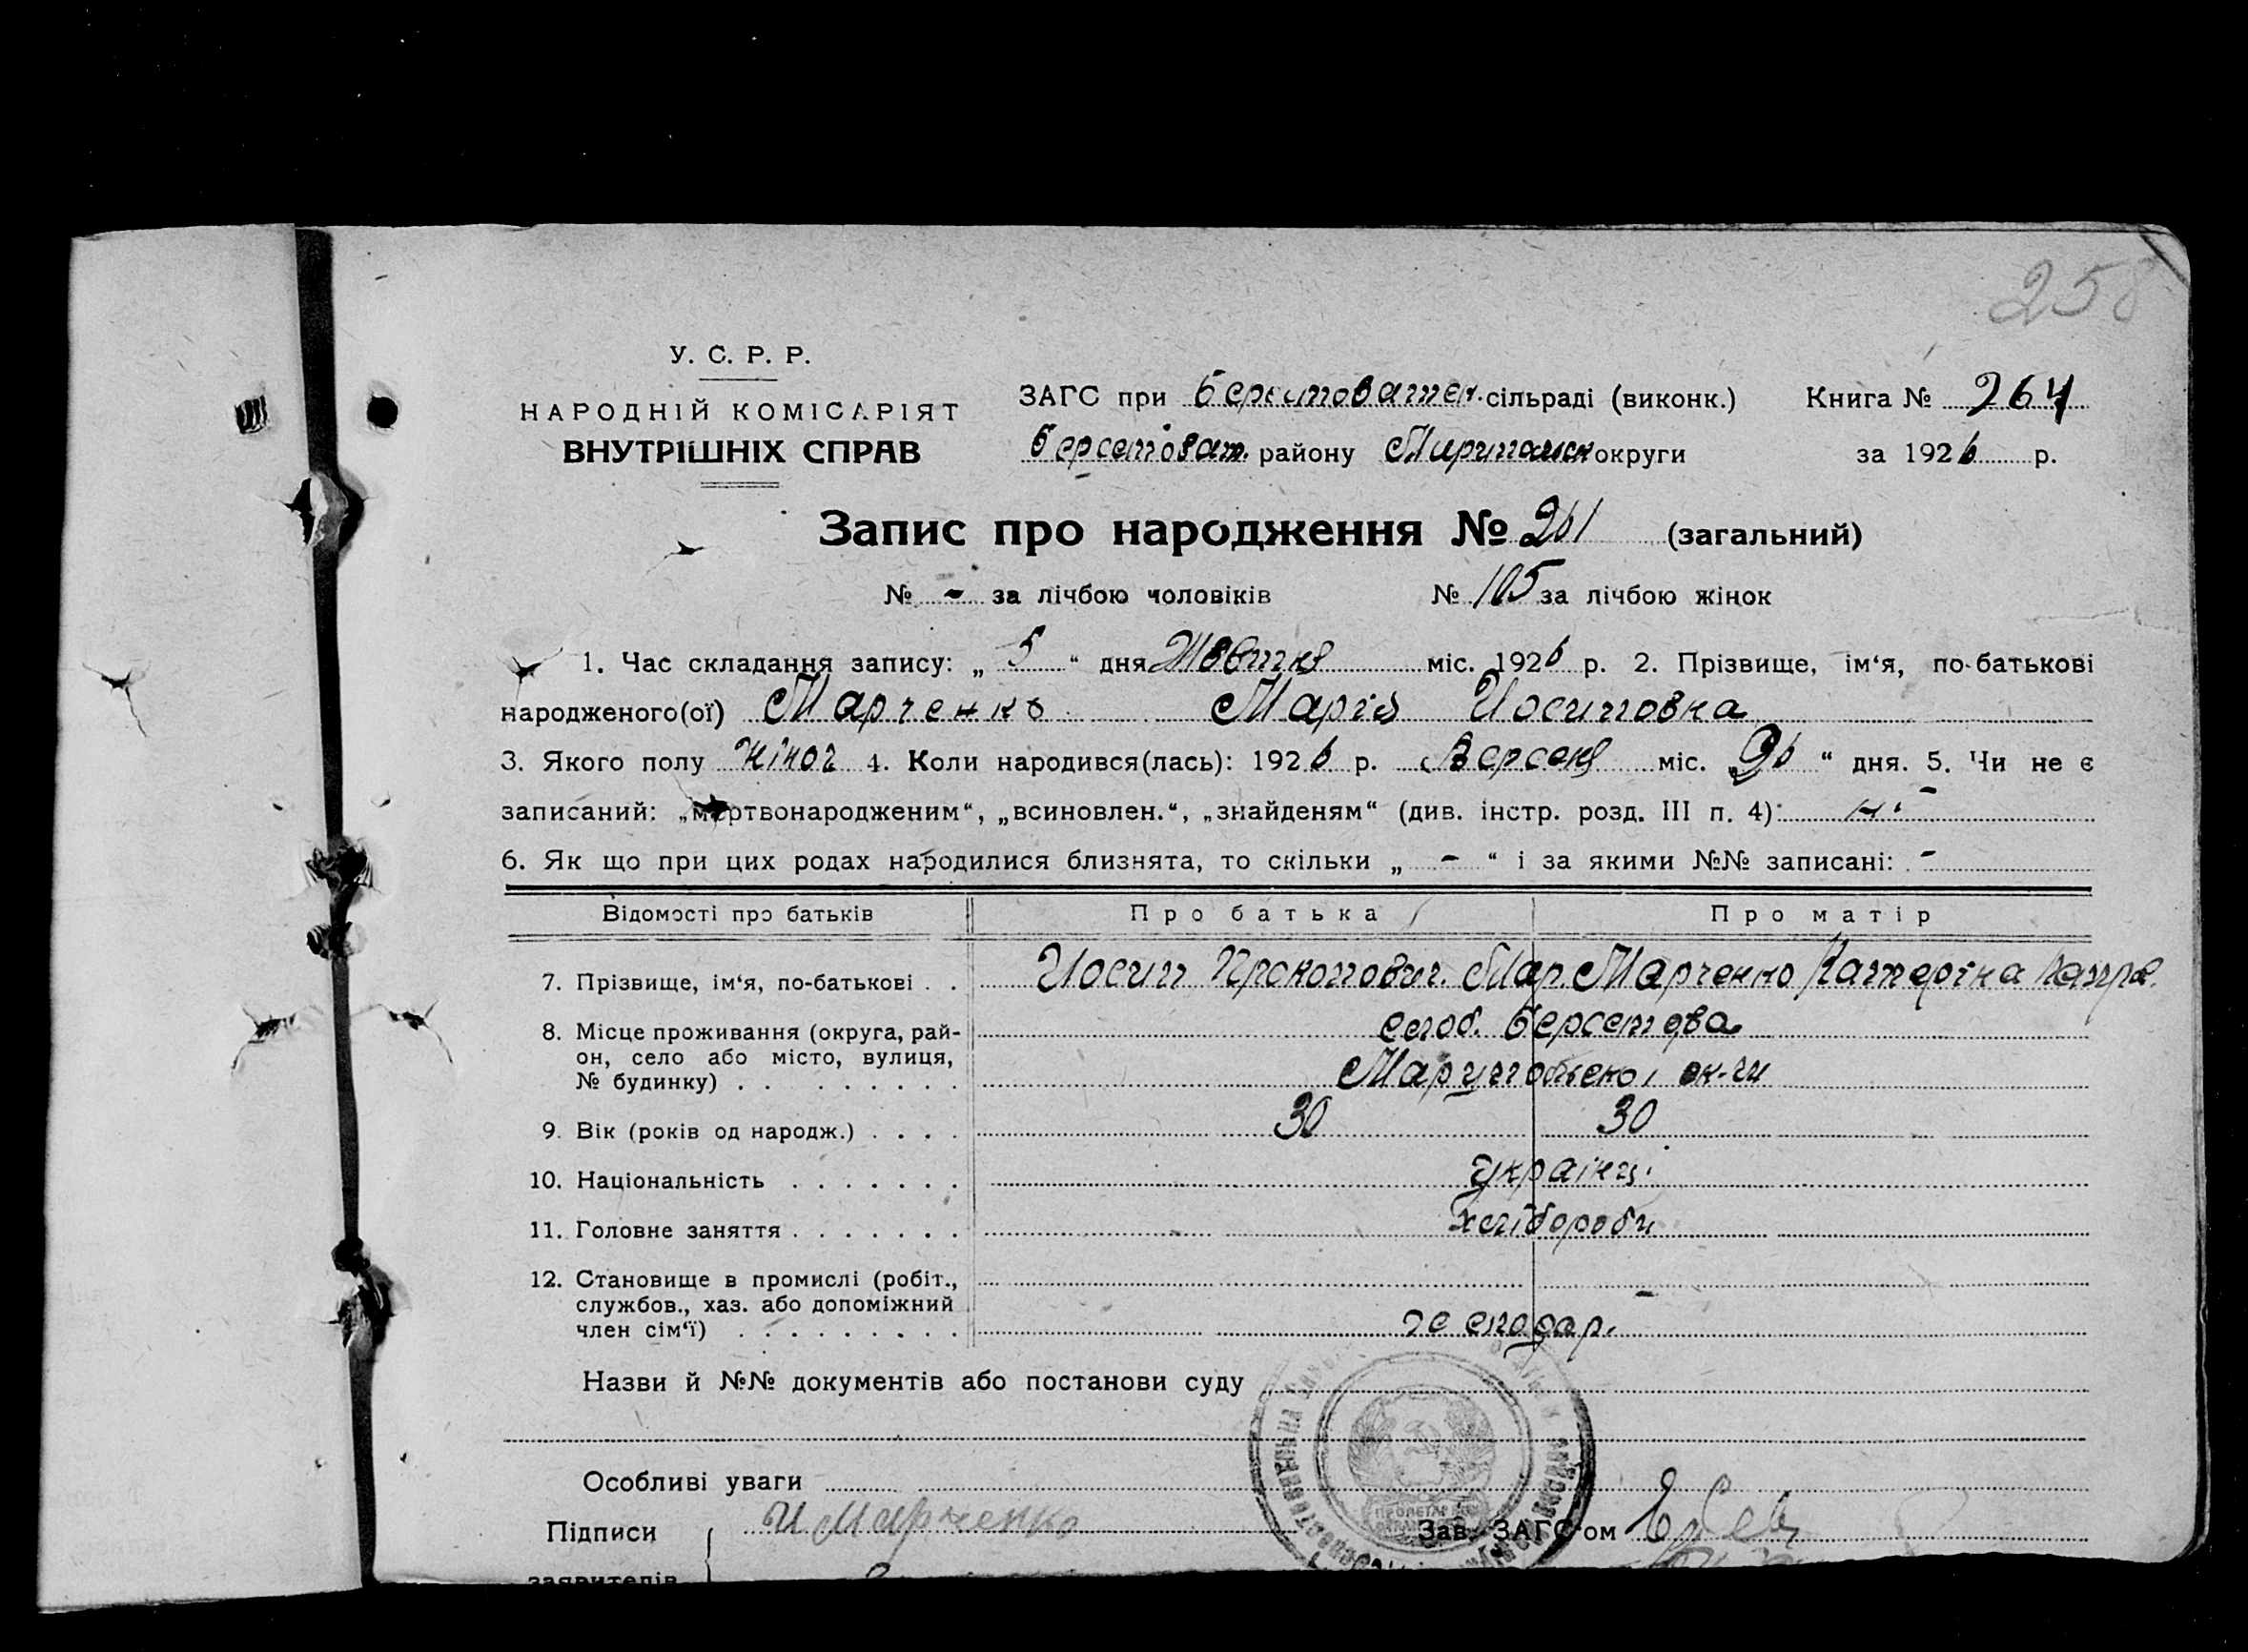 258
У. С. Р. Р.
НАРОДНІЙ КОМІСАРІЯТ
ВНУТРІШНІХ СПРАВ
ЗАГС при сільраді (виконк.) Книга № 264
Берестоват. району округи за 1926 р.
Запис про народження № 261 (загальний)
№ - за лічбою чоловіків № 105 за лічбою жінок
1. Час складання запису: „ 5 “ дня Жовтня міс. 1926 р. 2. Прізвище, ім‘я, по-батькові
народженого(ої) Марченко Марія Иосиповна
3. Якого полу жіноч 4. Коли народився(лась): 1926 р. Версня міс. 26 “ дня. 5. Чи не є
записаний: „мертвонародженим“, „всиновлен.“, „знайденям“ (див. інстр. розд. III п. 4):
6. Як що при цих родах народилися близнята, то скільки „ - “ і за якими №№ записані: -
Відомості про батьків Про батька Про матір
7. Прізвище, ім‘я, по-батькові . . Иосип Прокопович. Мар. Марченко Катеріна
8. Місце проживання (округа, рай-
он, село або місто, вулиця,
№ будинку) . . . . . . . . ок-ги
9. Вік (років од народж.) . . . . 30 30
10. Національність . . . . . . . українці
11. Головне заняття . . . . . . . хлібороби
12. Становище в промислі (робіт.,
службов., хаз. або допоміжний
член сім‘ї) . . . . . . . . . господар.
Назви й №№ документів або постанови суду
Особливі уваги
Підписи И Марченко Зав. ЗАГС‘ом
заявителів